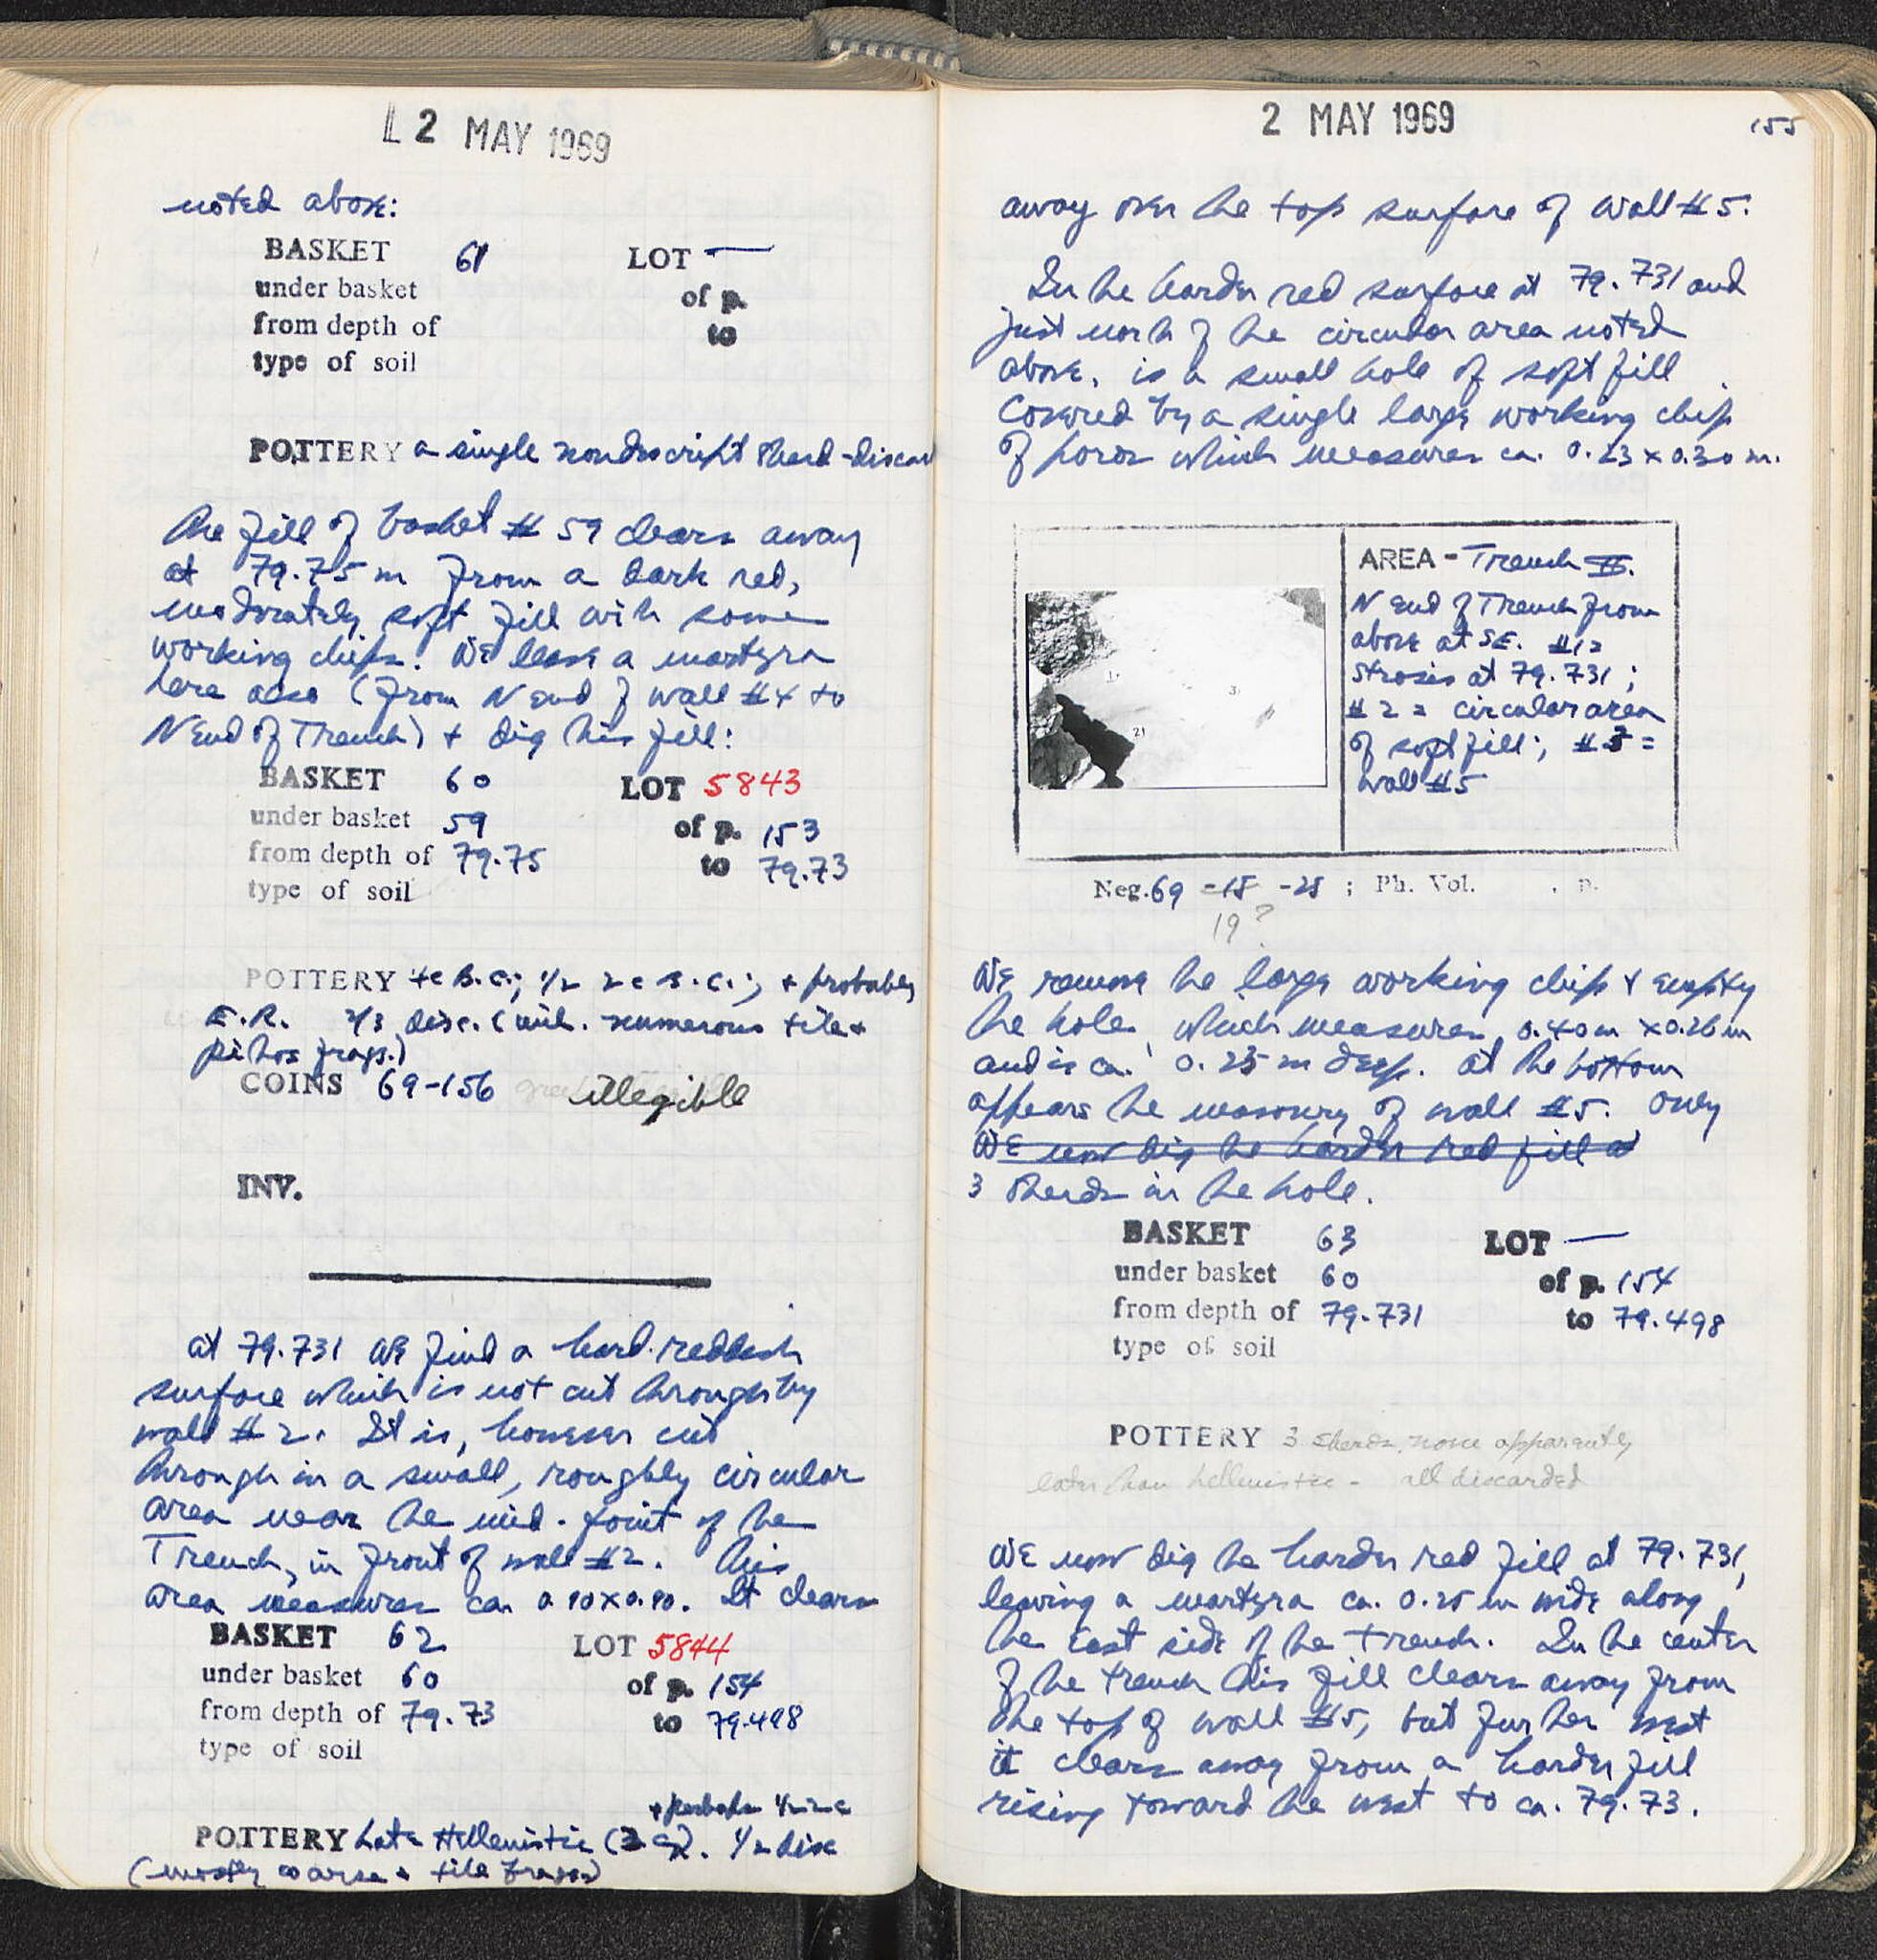 2 MAY 1969
noted above:
BASKET 61 LOT —
under basket of p.
from depth of to
type of soil
POTTERY a single nondescript sherd - discar
The fill of basket # 59 clears away
at 79.75 m from a dark red,
moderately soft fill with some
working chips. We leave a martyra
here also (from N End of wall #4 to
N End of Trench) + dig this fill:
BASKET 60 LOT 5843
under basket 59 of p. 153
from depth of 79.75 to 79.73
type of soil
POTTERY 4c B.C.; 1/2 2c B.C.; + probably
E.R. 2/3 disc. (incl. numerous tile +
pithos frags.)
COINS 69-156 illegible
INV.
at 79.731 we find a hard reddish
surface which is not cut through by
wall # 2. It is, however cut
through in a small, roughly circular
area near the mid-point of the
Trench, in front of wall #2. This
area measures ca. 0.90x0.90. It clears
BASKET 62 LOT 5844
under basket 60 of p. 154
from depth of 79.73 to 79.498
type of soil
+ perhaps 1/2 2c
POTTERY Late Hellenistic 1/2 disc
(mostly coarse + tile frags)
2 MAY 1969 155
away over the top surface of wall #5.
In the harder red surface at 79.731 and
just north of the circular area noted
above, is a small hole of soft fill
covered by a single large working chip
of poros which measures ca. 0.23 x 0.30 m.
AREA - Trench
N End of Trench from
above at SE. #1=
Strosis at 79.731;
#2 = circular area
of soft fill; #3 =
wall #5
1. 3. 2)
Neg. 69 -18 -25 ; Ph. Vol. , p.
19?
We remove the large working chip + empty
the hole, which measures 0.40m x 0.26m
and is ca. 0.25 m deep. at the bottom
appears the masonry of wall #5. Only
We now dig the harder red fill at
3 sherds in the hole.
BASKET 63 LOT —
under basket 60 of p. 154
from depth of 79.731 to 79.498
type of soil
POTTERY 3 sherds, none apparently
later than hellenistic - all discarded
We now dig the harder red fill at 79.731,
leaving a martyra ca. 0.25 m wide along
the east side of the trench. In the center
of the trench this fill clears away from
the top of wall #5, but further west
it clears away from a harder fill
rising toward the west to ca. 79.73.